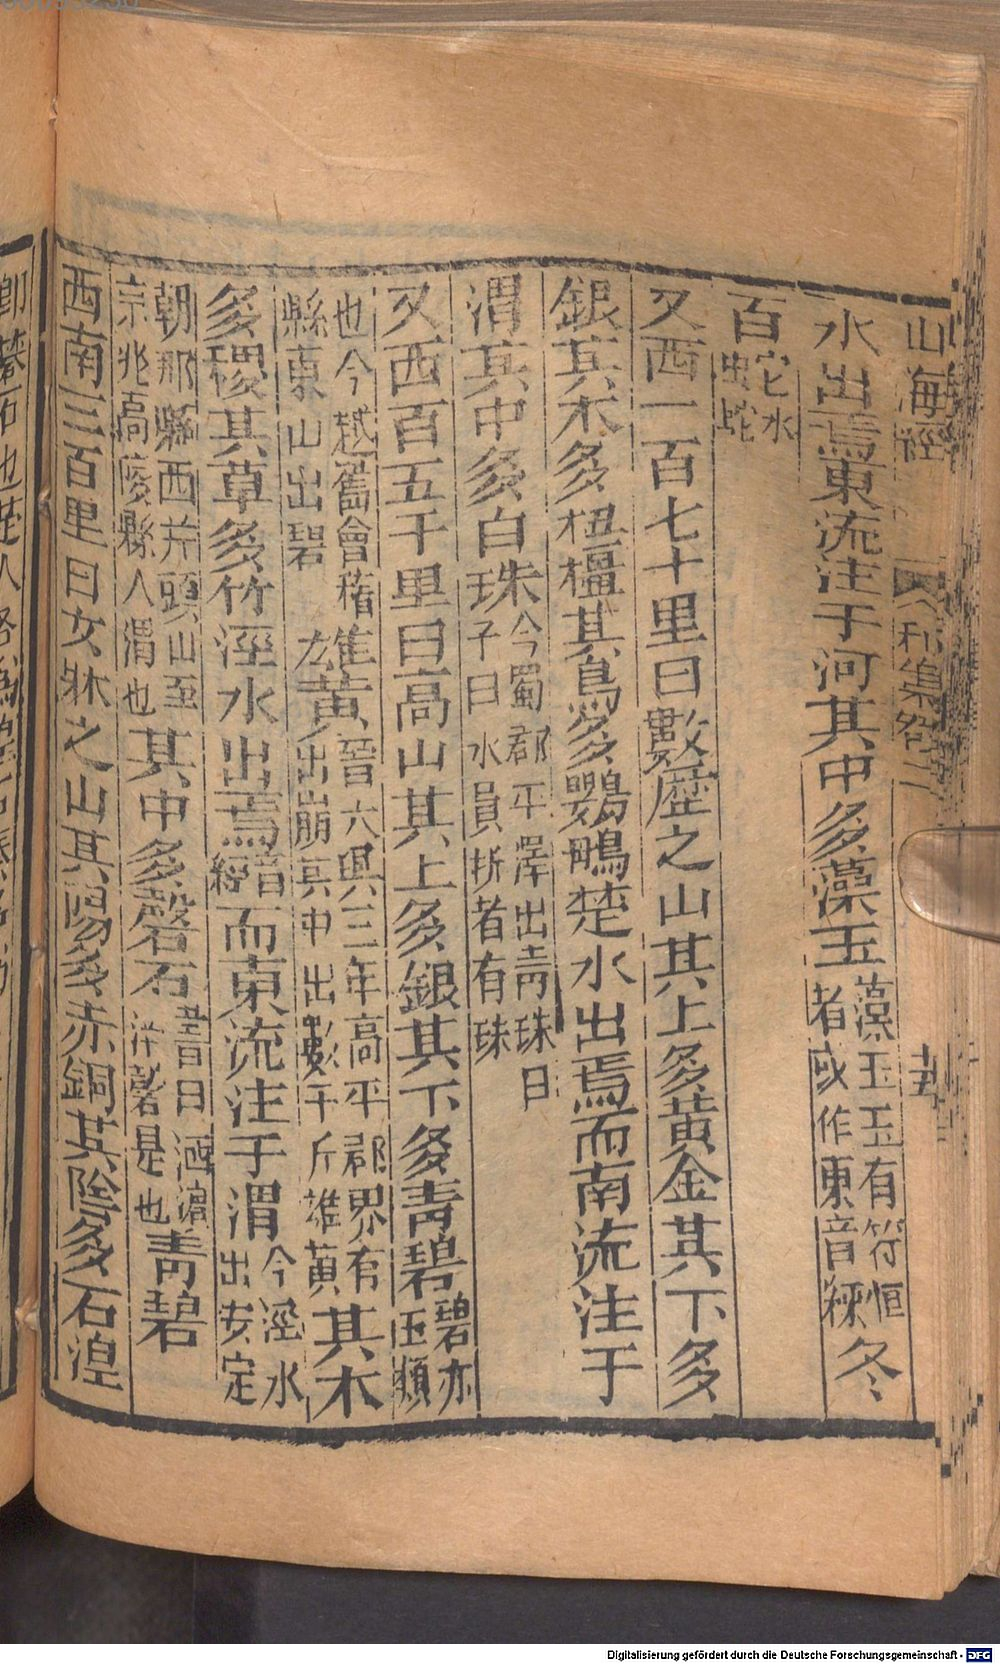 山海經 卷二 十五
水出焉東流注于河其中多藻玉藻玉玉有符恒者或作柬音練冬
百蛇水虫蛇
又西一百七十里曰數歷之山其上多黃金其下多
銀其木多杻橿其鳥多鸚䳇楚水出焉而南流注于
渭其中多白珠今蜀郡平澤出青珠曰子曰水員折者有珠
又西百五十里曰高山其上多銀其下多青碧碧亦玉類
也今越嶲會稽縣東山出碧雄黃晉大興三年高平郡界有山崩其中出數千斤雄黃其木
多椶其草多竹涇水出焉音經而東流注于渭今涇水出安定
朝那縣西笄頭山至京兆高陵縣入渭也其中多磬石書曰泗濱浮磬是也青碧
西南三百里曰女牀之山其陽多赤銅其陰多石湼
Digitalisierung gefördert durch die Deutsche Forschungsgemeinschaft - DFG